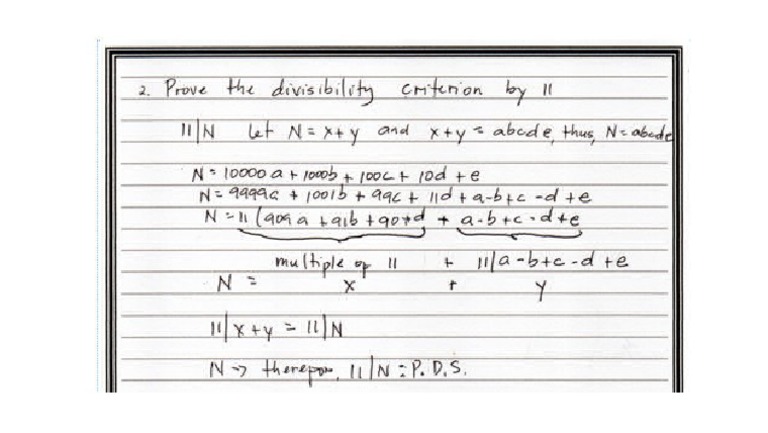 2. Prove the divisibility criterion by 11
11|N Let N = x+y and x+y = abcde, thus, N = abcde
N = 10000a + 1000b + 100c + 10d + e
N = 9999a + 1001b + 99c + 11d + a-b+c-d+e
N = 11 (909a + 91b + 90+d + a-b+c-d+e
multiple of 11 + 11|a-b+c-d+e
N = x + y
11|x+y = 11|N
N => therefore, 11|N = P.D.S.